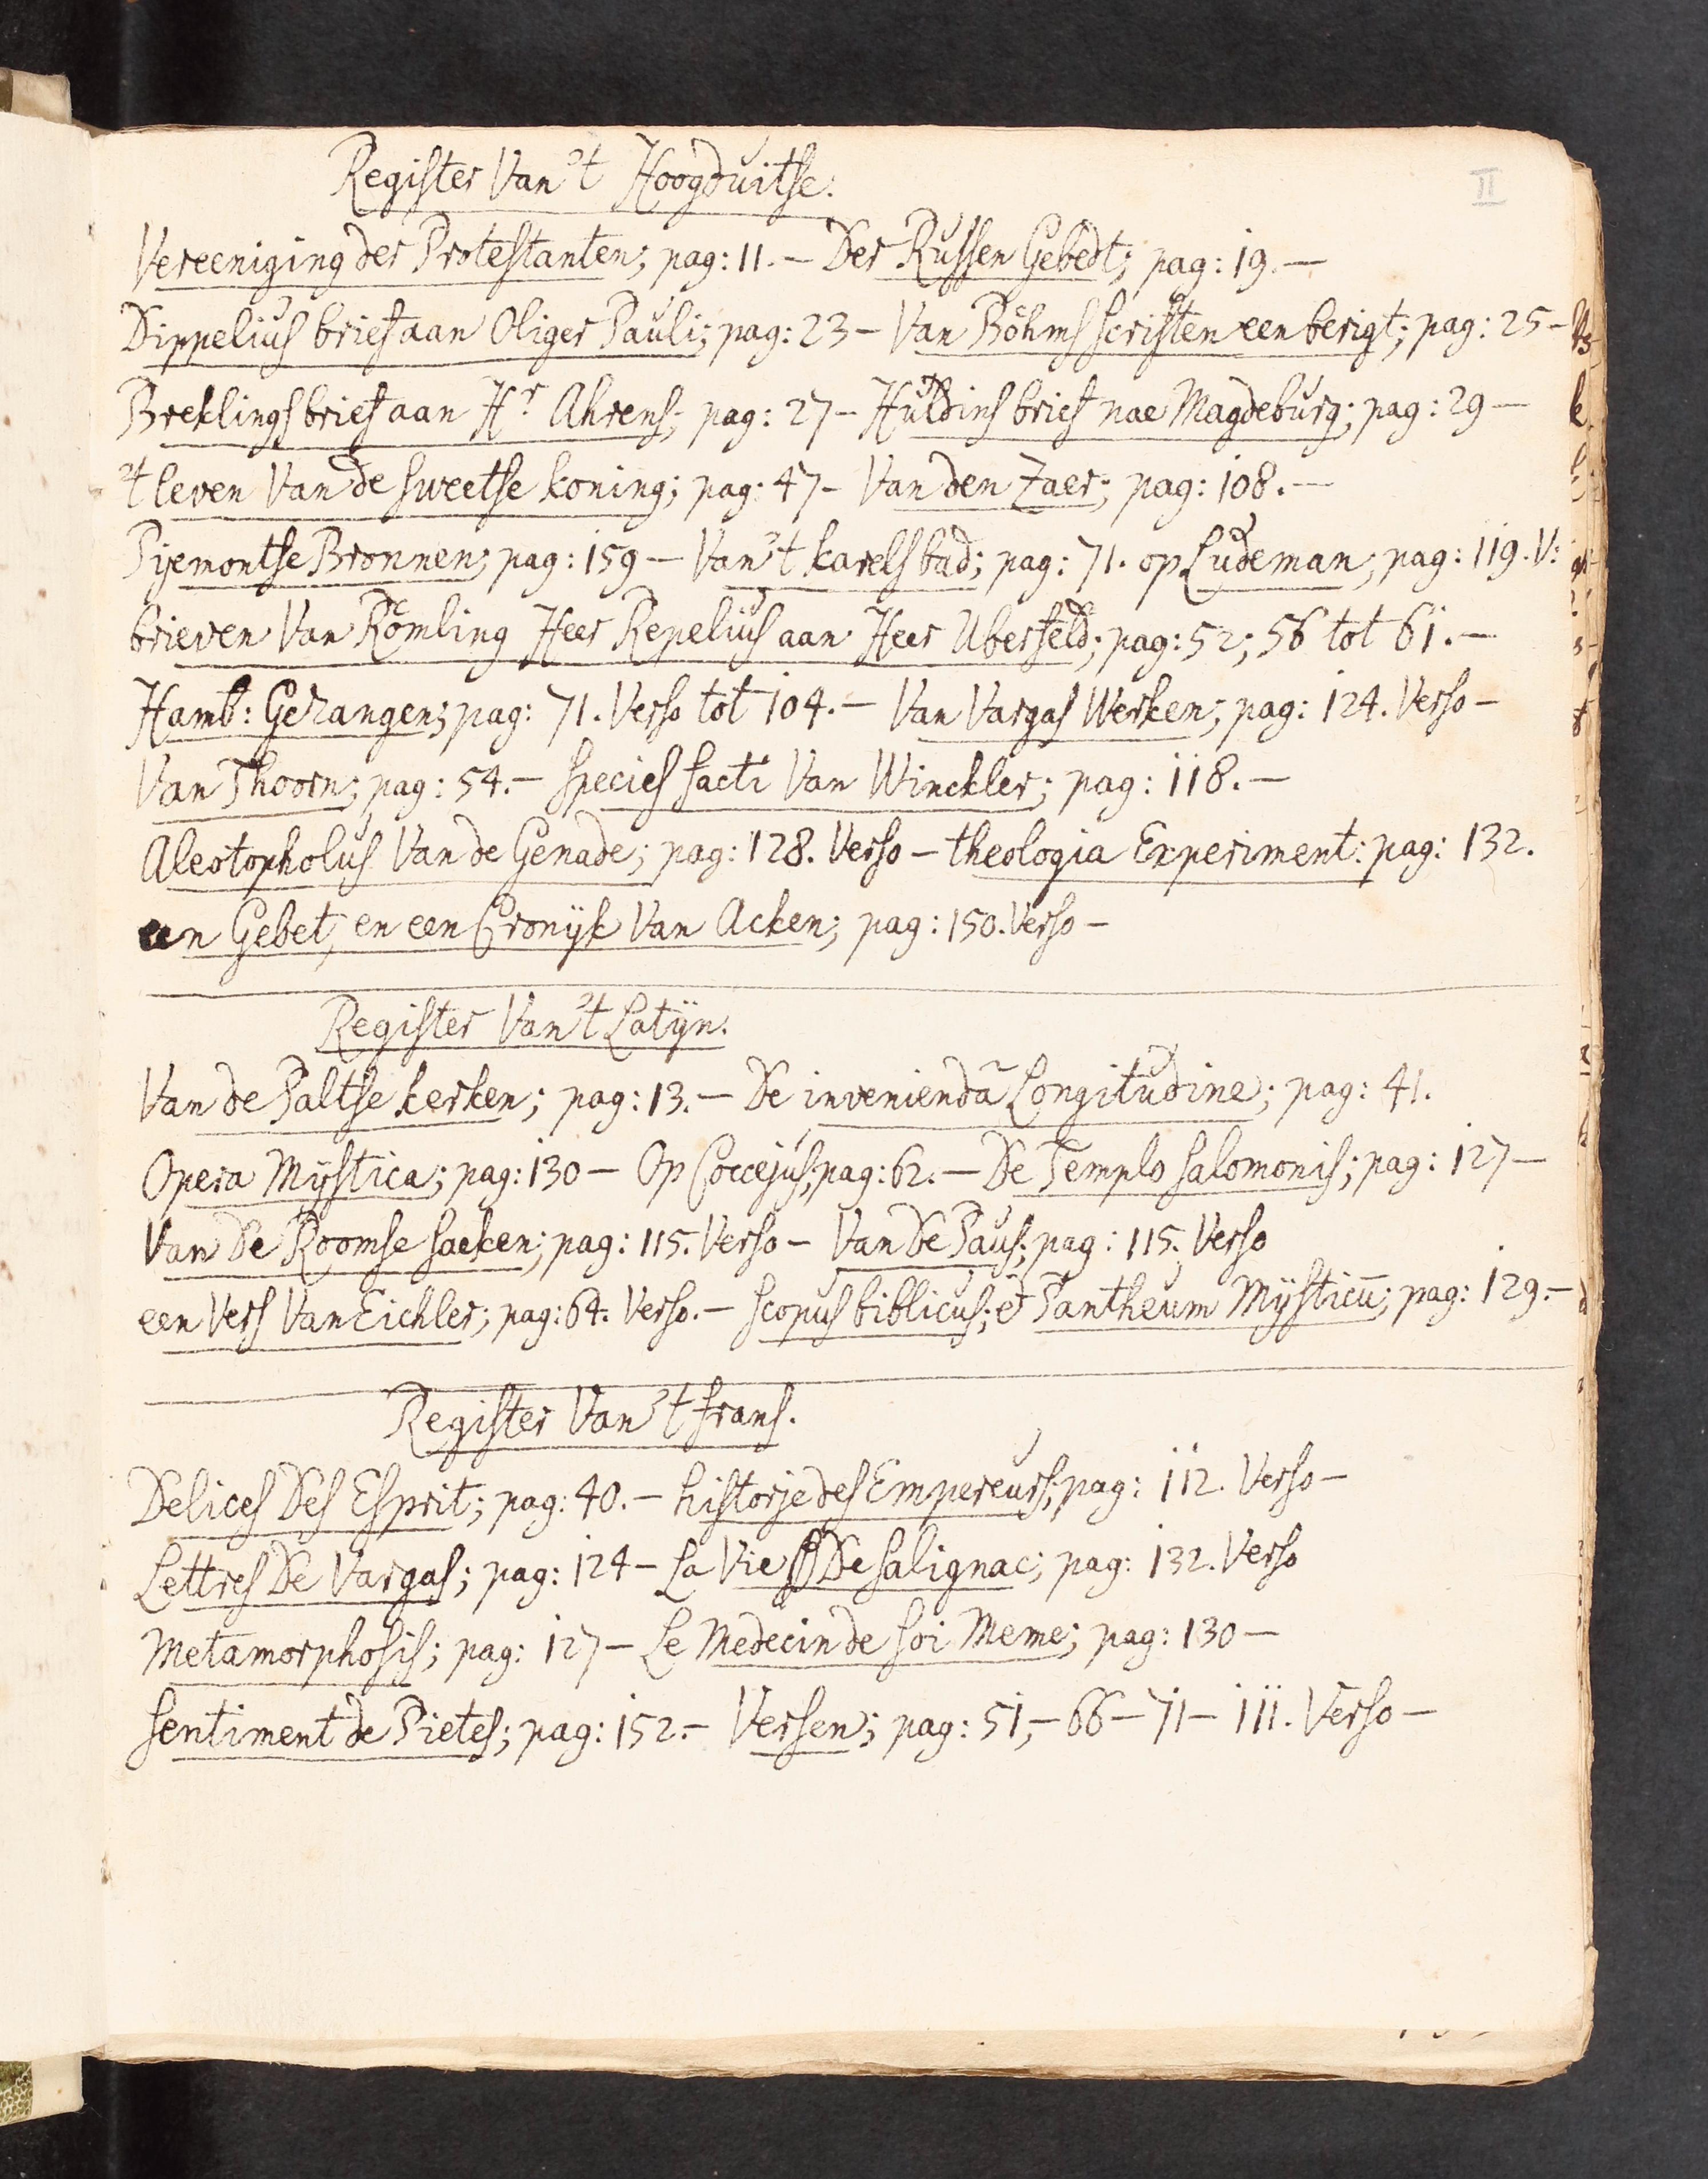 II
Register Van 't Hoogduitse.
Vereeniging der Protestanten; pag: 11. — Der Russen Gebedt; pag: 19. —
Dippelius brief aan Oliger Pauli; pag: 23 — Van Böhms scriften een berigt; pag: 25 —
Breklings brief aan Hr Ahrens; pag: 27 — Huldins brief nae Magdeburg; pag: 29 —
't leven Van de sweetse koning; pag: 47 — Van den Zaer; pag: 108. —
Pijemontse Bronnen; pag: 159 — Van 't karelsbad; pag: 71. op Ludeman; pag: 119. V:
brieven Van Römling Heer Repelius aan Heer Uberfeld; pag: 52; 56 tot 61. —
Hamb: Gezangen; pag: 71. Verso tot 104. — Van Vargas Werken; pag: 124. Verso —
Van Thoorn; pag: 54. — species facti Van Winckler; pag: 118. —
Aleotopholus Van de Genade; pag: 128. Verso — theologia Experiment: pag: 132.
een Gebet, en een Cronyk Van Acken; pag: 150. Verso —
Register Van 't Latÿn.
Van de Paltse kerken; pag: 13. — De inveniendâ Longitudine; pag: 41.
Opera Mÿstica; pag: 130 — Op Coccejus; pag: 62. — De Templo salomonis; pag: 127 —
Van De Roomse saeken; pag: 115. Verso — Van De Paus; pag: 115. Verso
een Vers Van Eichler; pag: 64. Verso. — scopus biblicus; et Pantheum Mÿsticū; pag: 129. —
Register Van 't frans.
Delices Des Esprit; pag: 40. — historje des Empereurs; pag: 112. Verso —
Lettres De Vargas; pag: 124 — La Vie De salignac; pag: 132. Verso
Metamorphosis; pag: 127 — Le Medecin de soi Meme; pag: 130 —
sentiment de Pietes; pag: 152. — Versen; pag: 51, — 66 — 71 — 111. Verso —